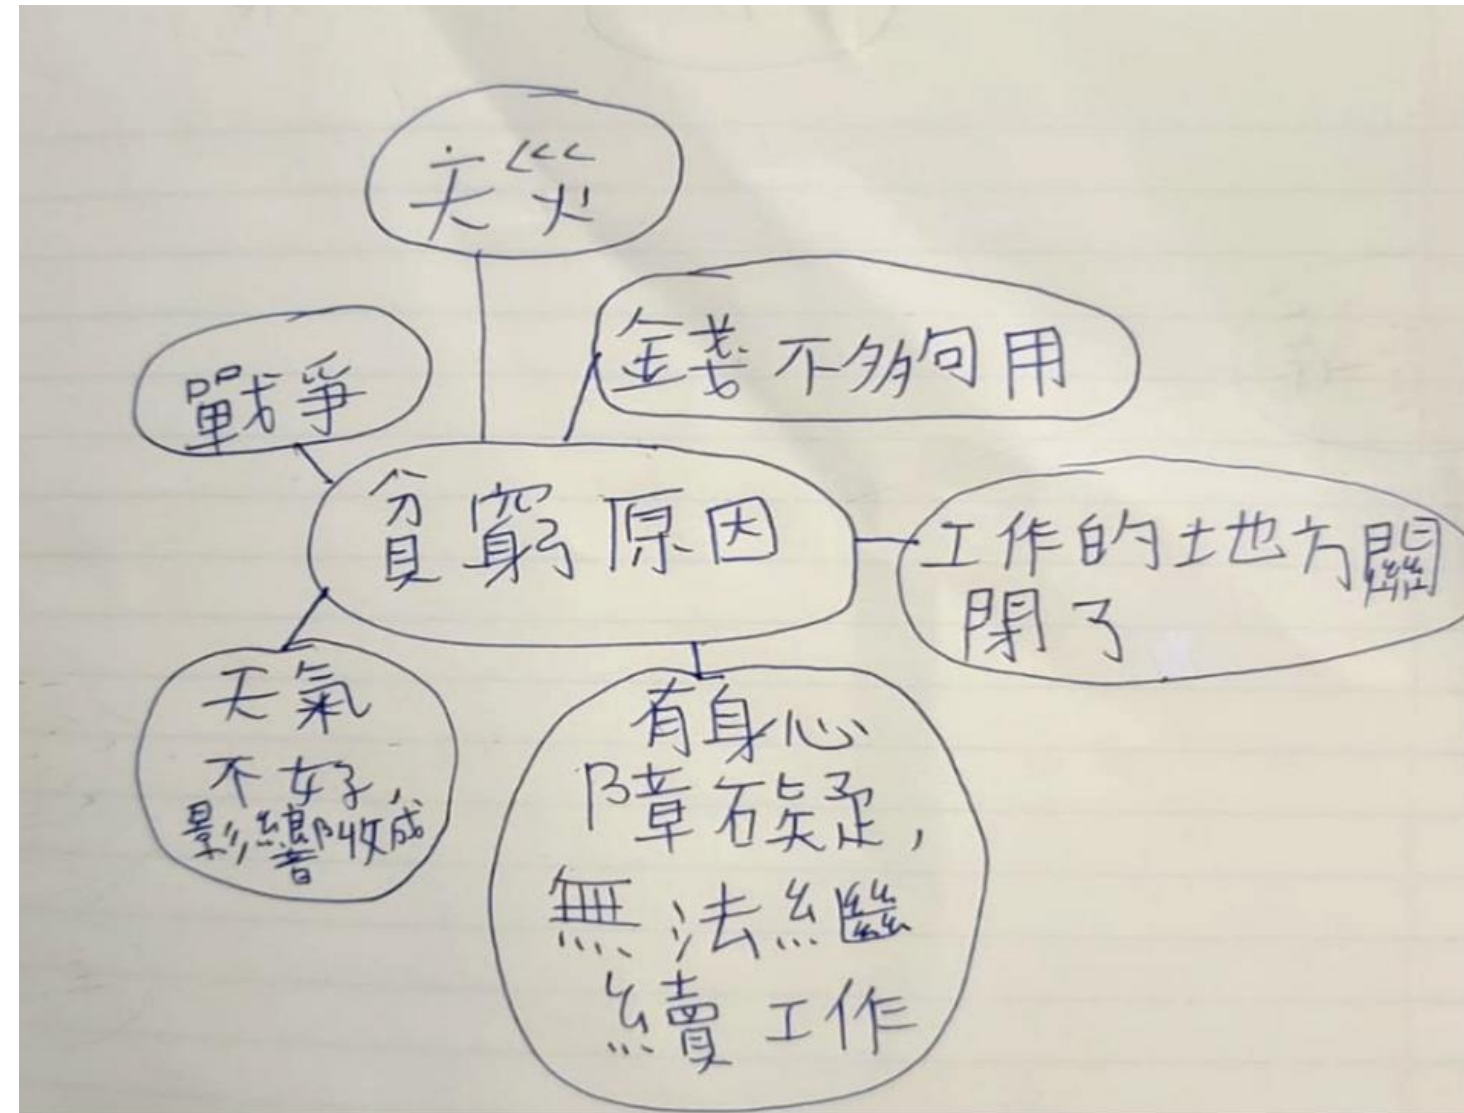 天災
金錢不夠用
戰爭
貧窮原因
工作的地方關
閉了
天氣
不好,
影響收成
有身心
障礙,
無法繼
續工作